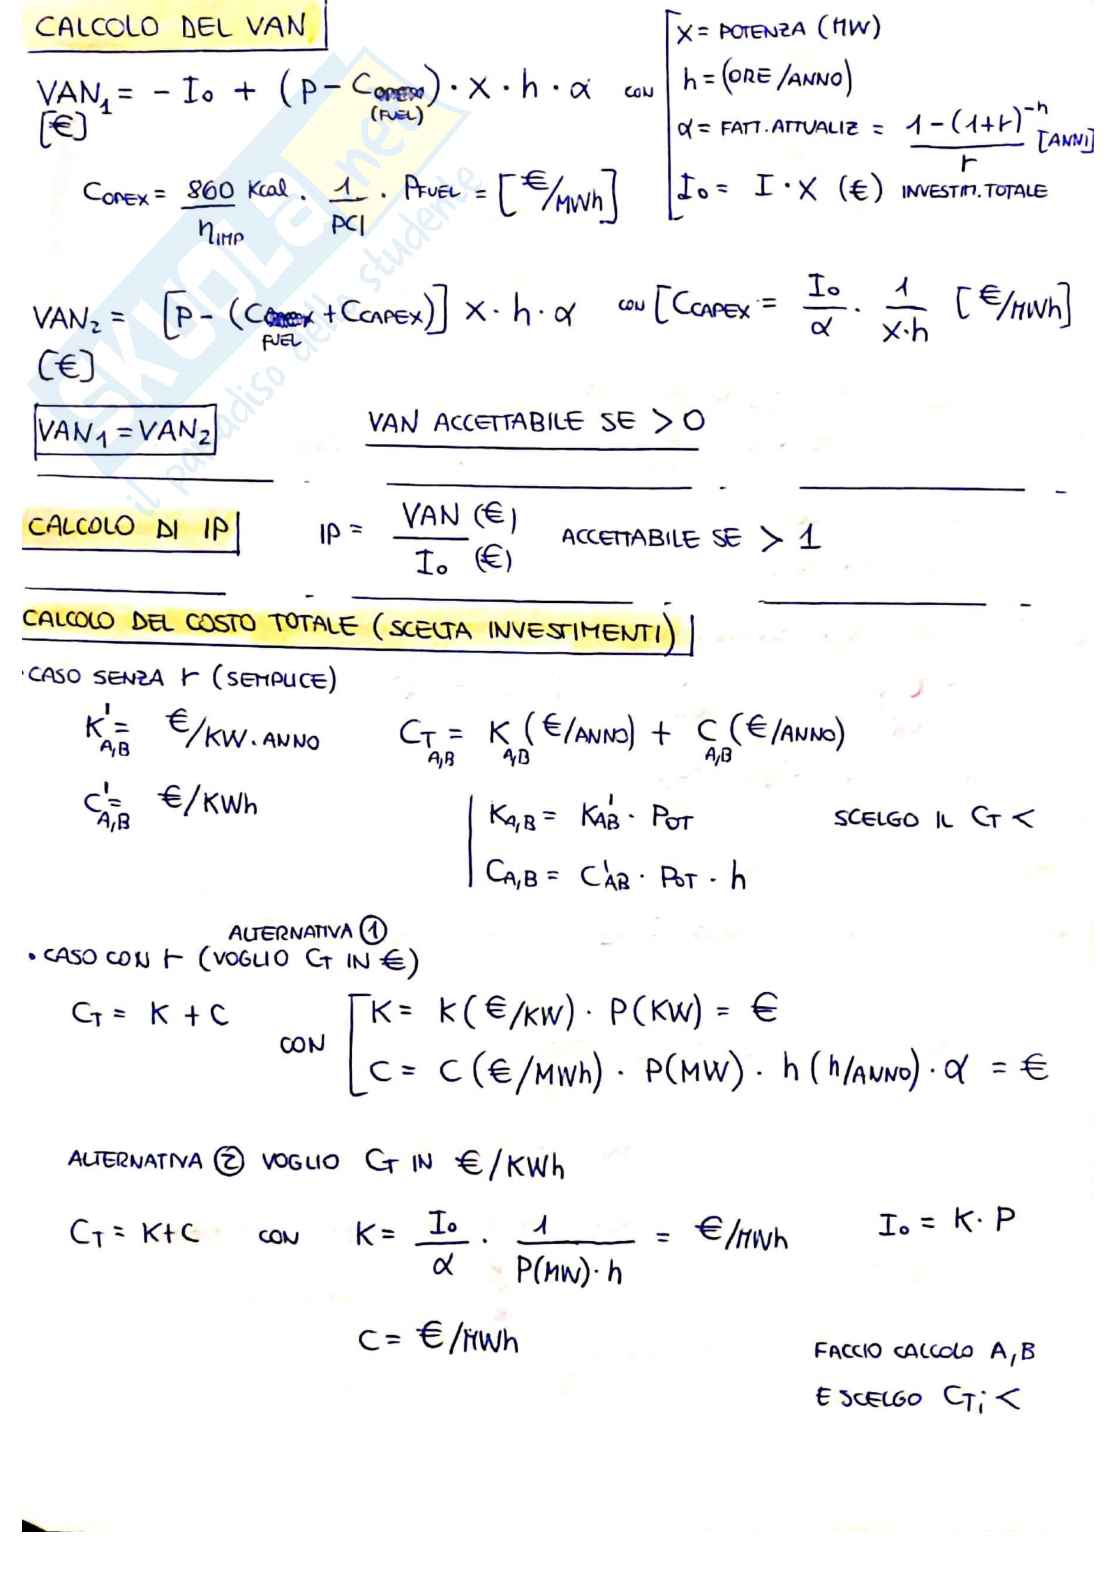 CALCOLO DEL VAN
VAN₁ = - I₀ + (P - C (FUEL)) · X · h · α CON
[€]
X = POTENZA (MW)
h = (ORE/ANNO)
α = FATT. ATTUALIZ = 1-(1+r)⁻ⁿ / r [ANNI]
I₀ = I · X (€) INVESTIM. TOTALE
C_OPEX = 860 Kcal / η_IMP · 1 / PCI · P_FUEL = [€/MWh]
VAN₂ = [P - (C FUEL + C_CAPEX)] X · h · α CON [C_CAPEX = I₀ / α · 1 / X·h [€/MWh]
[€]
VAN₁ = VAN₂
VAN ACCETTABILE SE > 0
CALCOLO DI IP
IP = VAN (€) / I₀ (€) ACCETTABILE SE > 1
CALCOLO DEL COSTO TOTALE (SCELTA INVESTIMENTI)
· CASO SENZA r (SEMPLICE)
K' A,B = €/KW·ANNO
C_T A,B = K A,B (€/ANNO) + C A,B (€/ANNO)
C' A,B = €/KWh
K A,B = K' AB · POT
SCELGO IL C_T <
C A,B = C' AB · POT · h
ALTERNATIVA ①
• CASO CON r (VOGLIO C_T IN €)
C_T = K + C CON
K = K (€/KW) · P(KW) = €
C = C (€/MWh) · P(MW) · h (h/ANNO) · α = €
ALTERNATIVA ② VOGLIO C_T IN €/KWh
C_T = K+C CON K = I₀ / α · 1 / P(MW)·h = €/MWh
I₀ = K · P
C = €/MWh
FACCIO CALCOLO A,B
E SCELGO C_Ti <
SKUOLA.net
il paradiso dello studente